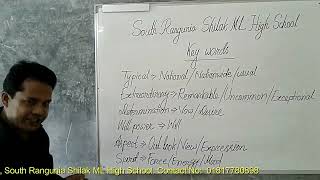 South Rangunia Shilak ML High School
Key words
Typical → National / Nationwide / usual
Extraordinary → Remarkable / Uncommon / Exceptional
Determination → Vow / Desire
Will power → Will
Aspect → Out look / View / Expression
Spirit → Force / Energy / Mood
, South Rangunia Shilak ML High School. Contact No: 01817780698